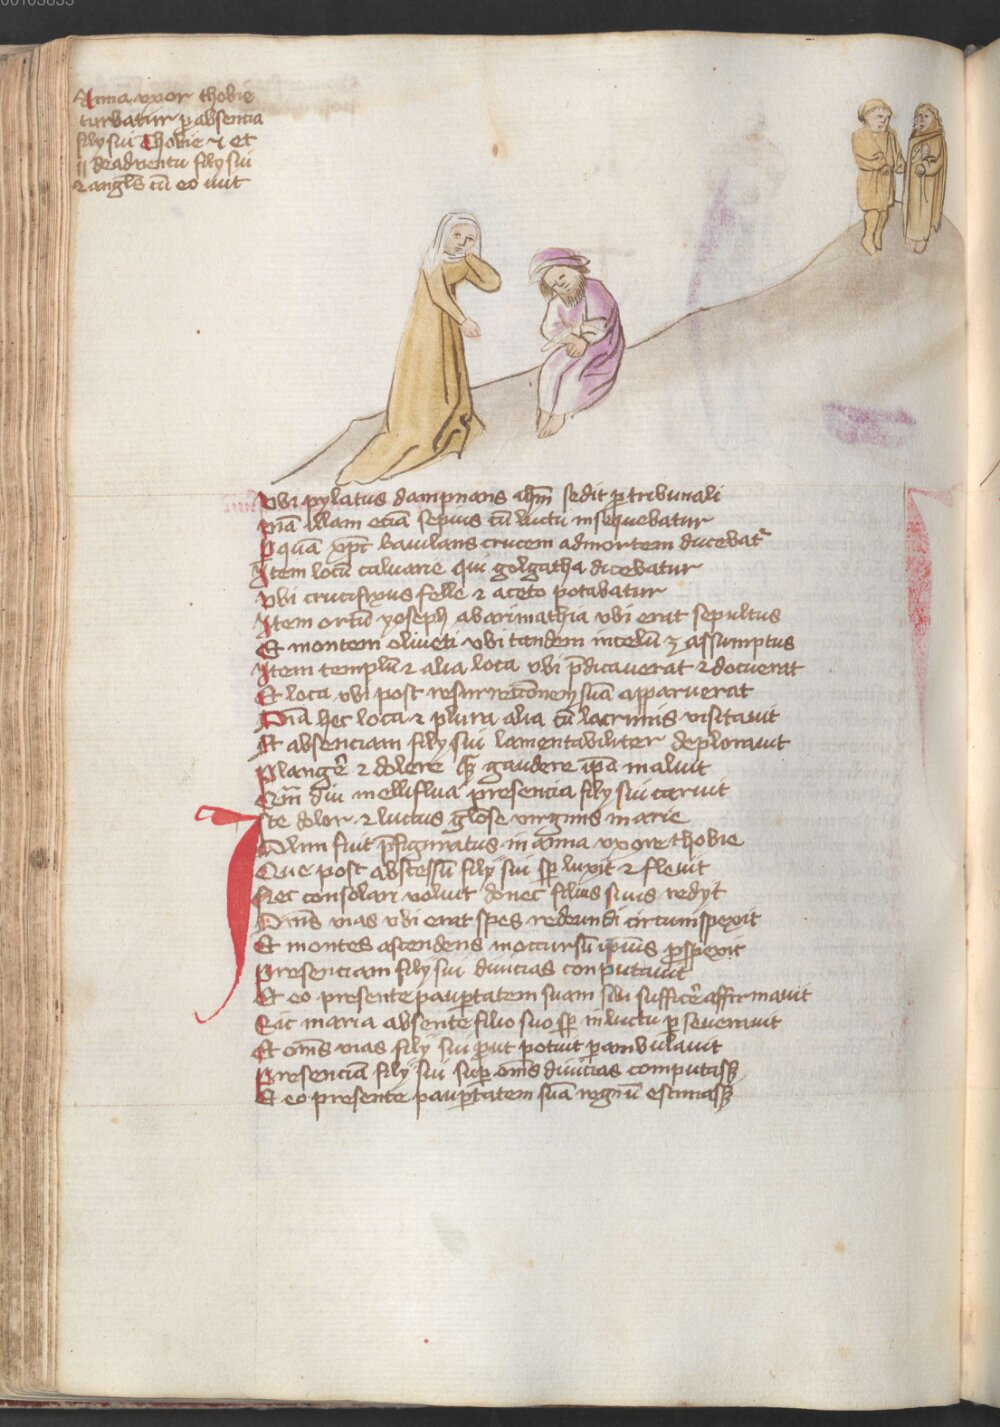 00103835
Anna vxor thobie
turbatur p absencia
filij sui Thobie et
de adventu filij sui
et angl's cū eo
Vbi pylatus dampnans xpm̄ sedit p tribunali
viā illam eciā sepius cū luctu insequebatur
P quā xpc̄ baiulans crucem ad mortem ducebatr
Item locū caluarie qui golgatha dicebatur
Vbi crucifixus felle et aceto potabatur
Item ortū yoseph abarimathia vbi erat sepultus
Et montem oliueti vbi tandem in celū ē assumptus
Item templū et alia loca vbi p̄dicauerat et docuerat
Et loca vbi post resurrectionem suā apparuerat
Omīa hec loca et plura alia cū lacrimis visitauit
Et absenciam filij sui lamentabiliter deplorauit
Plangē et dolere gaudere ip̄a maluit
Qm̄ diu melliflua presencia filij sui caruit
Iste dolor et luctus glōse virginis marie
Olim fuit p̄figuratus in anna vxore thobie
Que post abscessū filij sui sp̄ luxit et fleuit
Nec consolari voluit donec filius suus redijt
Om̄s vias vbi erat spes redeundi circumspexit
Et montes ascendens in occursū ip̄ius p̄spexit
Presenciam filij sui diuicias conputauit
Et eo presente paup̄tatem suam sibi sufficē affirmauit
Sic maria absente filio suo sp̄ in luctu p̄seuerauit
Et om̄s vias filij sui put potuit p̄ambulauit
Presenciā filij sui sup̄ om̄s diuicias computass3
Et eo presente paup̄tatem suā regnū estimass3